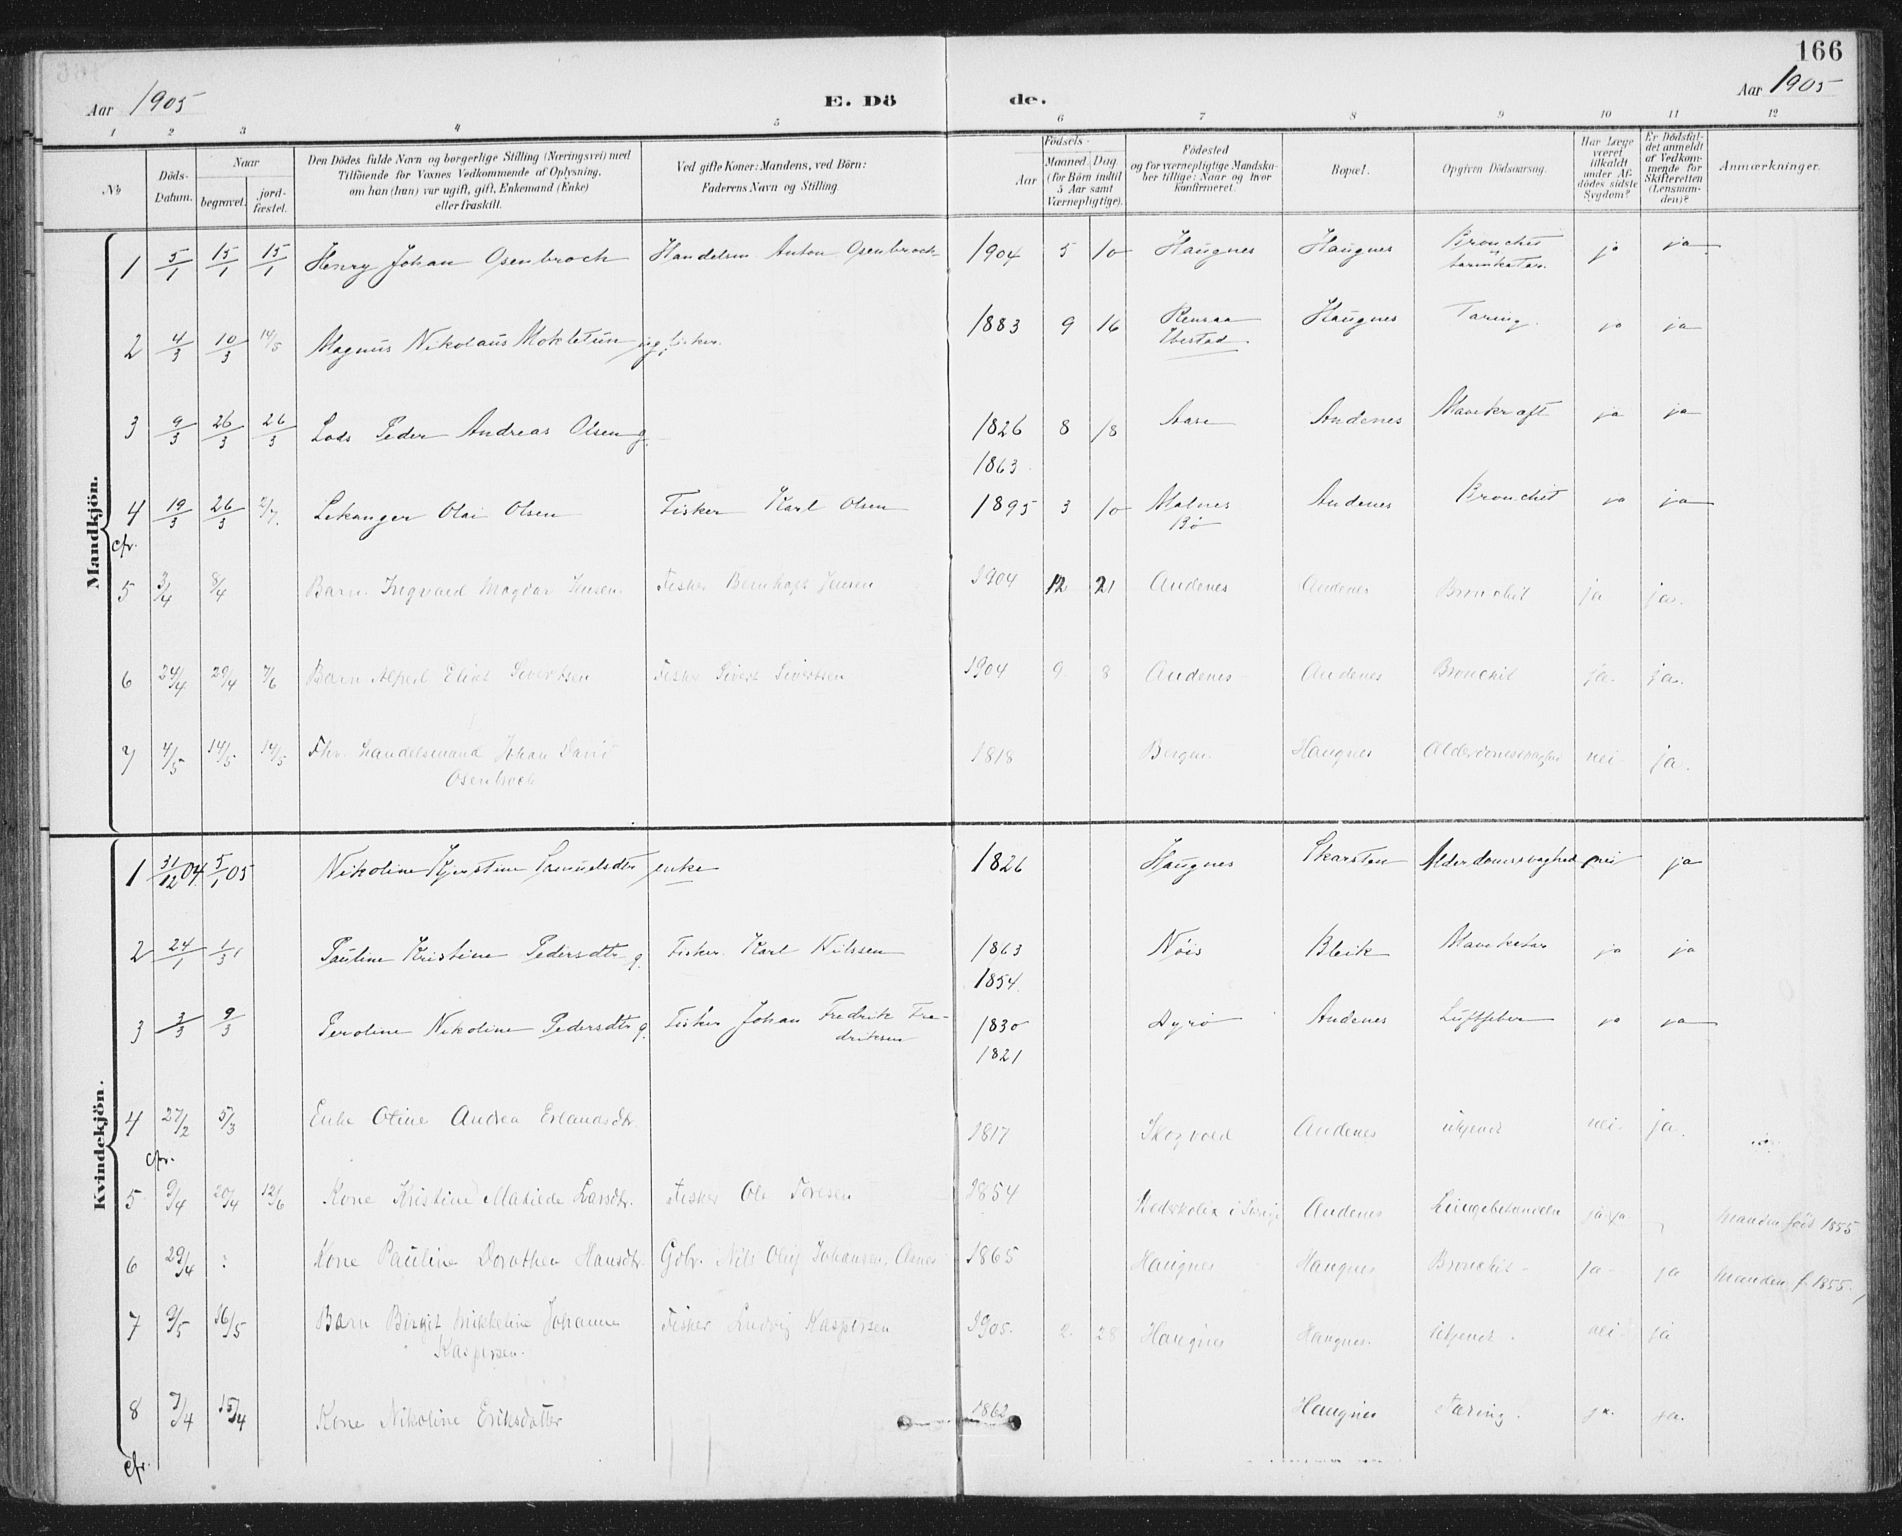 166
Aar 1905
E. Dö
de.
Aar 1905
1 2 3 4 5 6 7 8 9 10 11 12
No
Döds-Datum.
Naar
begravet.
jord-fæstet.
Den Dödes fulde Navn og borgerlige Stilling (Næringsvei) med
Tilföiende for Voxnes Vedkommende af Oplysning,
om han (hun) var ugift, gift, Enkemand (Enke)
eller fraskilt.
Ved gifte Koner: Mandens, ved Börn:
Faderens Navn og Stilling.
Födsels-
Aar
Maaned Dag
(for Börn indtil
5 Aar samt
Værnepligtige).
Födested
og for værnepligtige Mandska-
ber tillige: Naar og hvor
konfirmeret.
Bopæl.
Opgiven Dödsaarsag.
Har Læge
været
tilkaldt
under Af-
dödes sidste
Sygdom?
Er Dödsfal-
det anmeldt
af Vedkom-
mende for
Skifteretten
(Lensman-
den)?
Anmærkninger.
Mandkjön.
1 5/1 15/1 15/1 Henry Johan Osenbroch Handelsm Anton Osenbroch 1904 5 10 Haugnes Haugnes Bronchit ja ja
2 4/3 10/3 14/5 Magnus Nikolaus Mokletun ug. fisker. 1883 9 16 Rensaa Haugnes Tæring. ja ja
Ibestad.
3 9/3 26/3 26/3 Lods Peder Andreas Olsen g. 1826 8 18 Aase Andenes Mavekræft ja ja
1863
4 19/3 26/3 2/7. Olai Olsen Fisker Karl Olsen 1895 3 10 Malnes Andenes Bronchit ja ja
cfr. Bø
5 3/4 8/4 Barn Ingvald Magdar Jensen. Fisker Bernhoft Jensen 1904 12 21 Andenes Andenes Bronchit ja ja.
6 24/4 29/4 7/6 Barn Alfred Elias Sivertsen Fisker Sivert Sivertsen 1904 9 8 Andenes Andenes Bronchit ja. ja.
7 4/5 14/5 14/5 Fhv. Handelsmand Johan David 1818 Bergen Haugnes Alderdomssvaghed nei ja.
Osenbroch
Kvindekjön.
1 31/12 04 5/1 05 Nikoline Kjerstine Samuelsdtr enke 1826 Haugnes Skarsten Alderdomssvaghed nei ja
2 24/1 1/3 Pauline Kristine Pedersdtr g. Fisker Karl Nilssen 1863 Nøis Bleik Mavekatar ja ja
1854.
3 3/3 9/3 Peroline Nikoline Pedersdtr g. Fisker Johan Fredrik Fre- 1830 Dyrø Andenes ja ja
driksen
1821
4 27/2 5/3 Enke Oline Andrea Erlandsdtr. 1817 Skogvold Andenes ukjendt nei ja.
cfr.
5 9/4 20/4 12/6 Kone Kristine Matilde Larsdtr. Fisker Ole Toresen 1854 Andenes ja Manden født 1855
6 29/4 : Kone Pauline Dorothea Hansdtr. Gbr. Nils Olai Johansen, Aanes 1865 Haugnes Haugnes Bronchit ja ja Manden f. 1855.
7 9/5 16/5 Barn Birgit Mikkeline Johanne Fisker Ludvig Kaspersen 1905. 2. 28 Haugnes Haugnes. Ukjendt. nei ja
Kaspersen.
8 7/4 15/4 Kone Nikoline Eriksdatter 1862 Haugnes Tæring. ja. ja.
cfr.